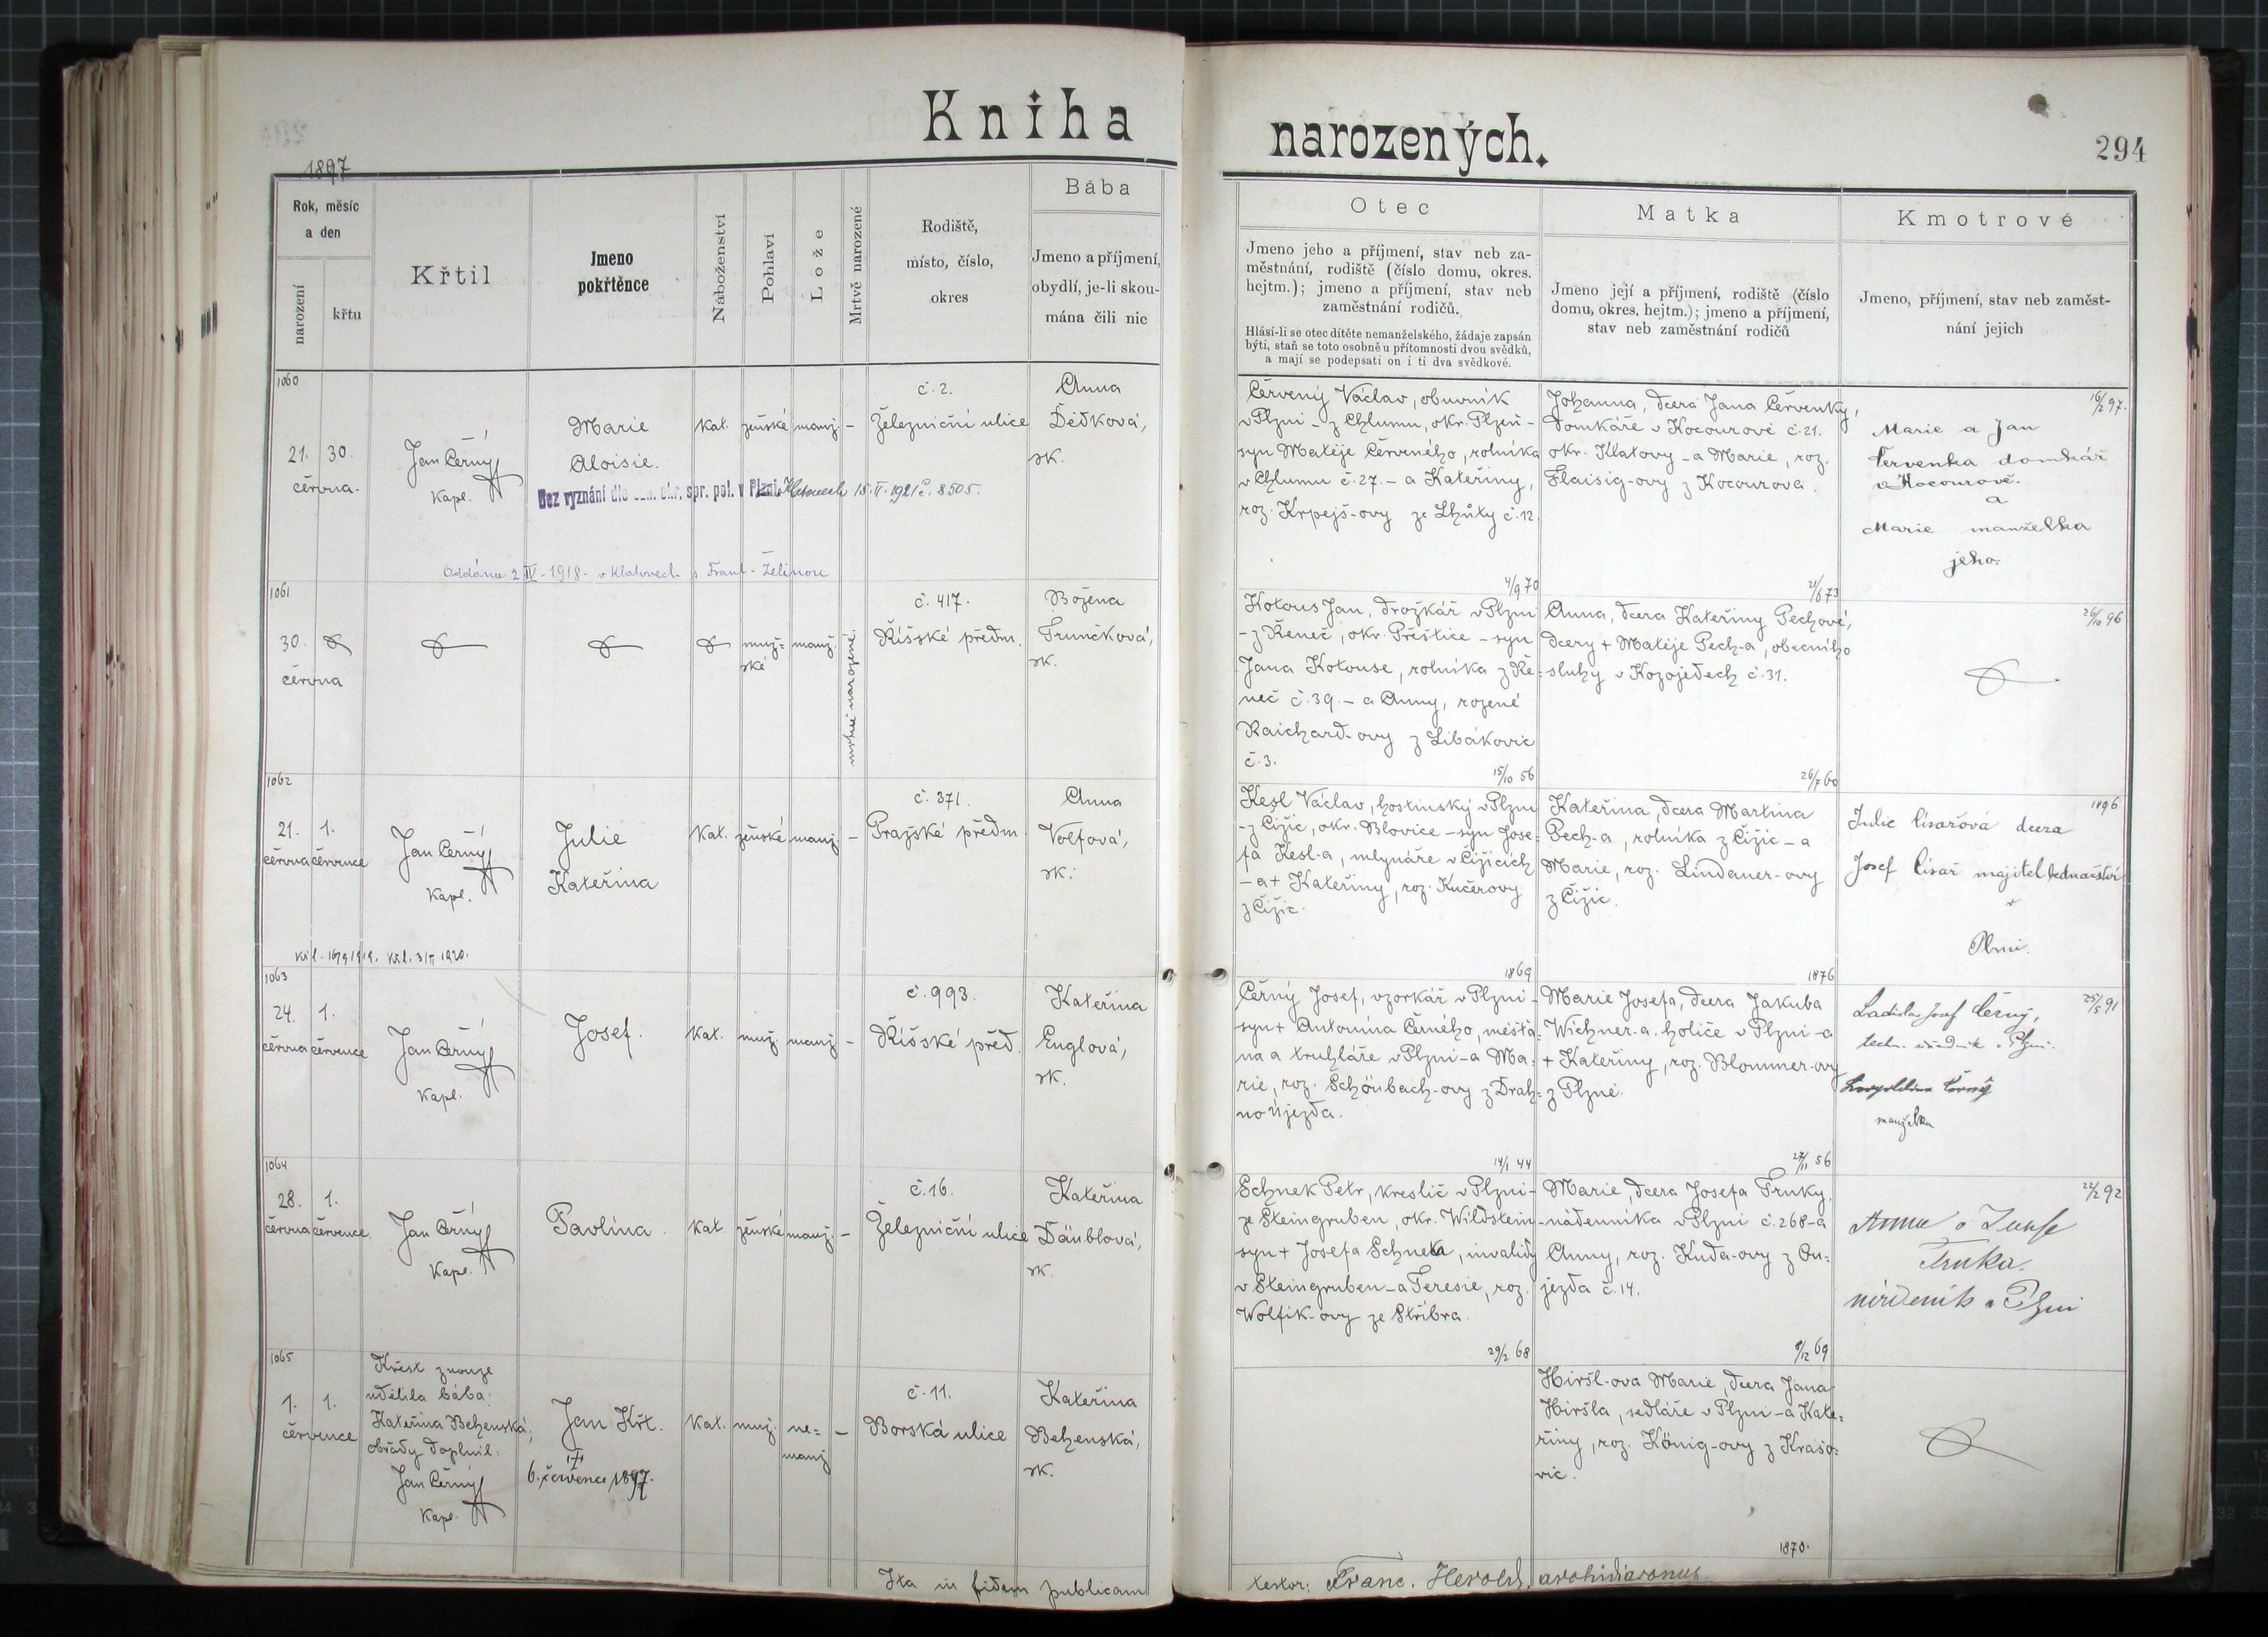 Kniha
narozených.
294
1897
Rok, měsíc
a den
narození
křtu
Křtil
Jmeno
pokřtěnce
Náboženství
Pohlaví
Lože
Mrtvě narozené
Rodiště,
místo, číslo,
okres
Bába
Jmeno a příjmení,
obydlí, je-li skou-
mána čili nic
Otec
Jmeno jeho a příjmení, stav neb za-
městnání, rodiště (číslo domu, okres.
hejtm.); jmeno a příjmení, stav neb
zaměstnání rodičů.
Hlásí-li se otec dítěte nemanželského, žádaje zapsán
býti, staň se toto osobně u přítomnosti dvou svědků,
a mají se podepsati on i ti dva svědkové.
Matka
Jmeno její a příjmení, rodiště (číslo
domu, okres, hejtm.); jmeno a příjmení,
stav neb zaměstnání rodičů
Kmotrové
Jmeno, příjmení, stav neb zaměst-
nání jejich
1060
21. 30.
června.
Jan Černý
Kapl.
Marie
Aloisie.
Kat. ženské manž. –
č. 2.
Železniční ulice
Anna
Dědková,
zk.
Bez vyznání dle ozn. okr. spr. pol. v Klatovech 15.II.1921 č. 8505.
Oddána 2 IV. 1918. v Klatovech s Frant. Želinou
Červený Václav, obuvník
v Plzni – z Chlumu, okr. Plzeň –
syn Matěje Červeného, rolníka
v Chlumu č. 27. – a Kateřiny,
roz. Krpejš-ovy ze Lhůty č. 12.
4/9 70
Johanna, dcera Jana Červenky,
domkáře v Kocourově č. 21.
okr. Klatovy – a Marie, roz.
Flaisig-ovy z Kocourova.
21/6 73
16/2 97.
Marie a Jan
Červenka domkář
v Kocourově.
a
Marie manželka
jeho.
1061
30.
června
muž=
ské
manž.
mrtvě narozené.
č. 417.
Říšské předm.
Božena
Trunčková,
zk.
Kotous Jan, drožkář v Plzni
– z Řeneč, okr. Přeštice – syn
Jana Kotouse, rolníka z Ře=
neč č. 39. – a Anny, rozené
Raichard-ovy z Libákovic
č. 3.
15/10 56
Anna, dcera Kateřiny Pechové,
dcery + Matěje Pech-a, obecního
sluhy v Kozojedech č. 31.
26/7 60
26/10 96
1062
21. 1.
června července
Jan Černý
Kapl.
Julie
Kateřina
Kat. ženské manž. –
č. 371.
Pražské předm.
Anna
Volfová,
zk.
Kesl Václav, hostinský v Plzni
– z Čižic, okr. Blovice – syn Jose=
fa Kesl-a, mlynáře v Čižicích
– a + Kateřiny, roz. Kučerovy
z Čižic.
1869
Kateřina, dcera Martina
Pech-a, rolníka z Čižic – a
Marie, roz. Lindauer-ovy
z Čižic.
1876
1896
Julie Císařová dcera
Josef Císař majitel bednářství
v
Plzni.
1063
24. 1.
června července
Jan Černý
Kapl.
Josef.
Kat. muž. manž. –
č. 993.
Říšské před.
Kateřina
Englová,
zk.
Černý Josef, vzorkář v Plzni –
syn + Antonína Černého, měšťa=
na a truhláře v Plzni – a Ma=
rie, roz. Schönbach-ovy z Drah=
noújezda.
14/1 44
Marie Josefa, dcera Jakuba
Wichner-a, holiče v Plzni – a
+ Kateřiny, roz. Blommer-ovy
z Plzně.
27/11 56
25/5 91
Ladislav Josef Černý,
techn. úředník v Plzni.
Leopoldina Černý
manželka
1064
28. 1.
června července
Jan Černý
Kapl.
Pavlína.
Kat. ženské manž. –
č. 16.
Železniční ulice
Kateřina
Däublová,
zk.
Schnek Petr, kreslič v Plzni –
ze Steingruben, okr. Wildstein –
syn + Josefa Schneka, invalidy
v Steingruben – a Teresie, roz.
Wolfik-ovy ze Stříbra.
29/2 68
Marie, dcera Josefa Trnky,
nádenníka v Plzni č. 268 – a
Anny, roz. Kuda-ovy z Ou=
jezda č. 14.
8/12 69
22/2 92
Trnka.
1065
1. 1.
července
Křest z nouze
udělila bába:
Kateřina Behenská;
obřady doplnil:
Jan Černý
Kapl.
Jan Křt.
6. července 1897.
Kat. muž. ne=
manž. –
č. 11.
Borská ulice
Kateřina
Behenská,
zk.
Hiršl-ova Marie, dcera Jana
Hiršla, sedláře v Plzni – a Kate=
řiny, roz. König-ovy z Krašo=
vic.
1870.
Ita in fidem publicam
testor: Franc. Herold, archidiaconus.